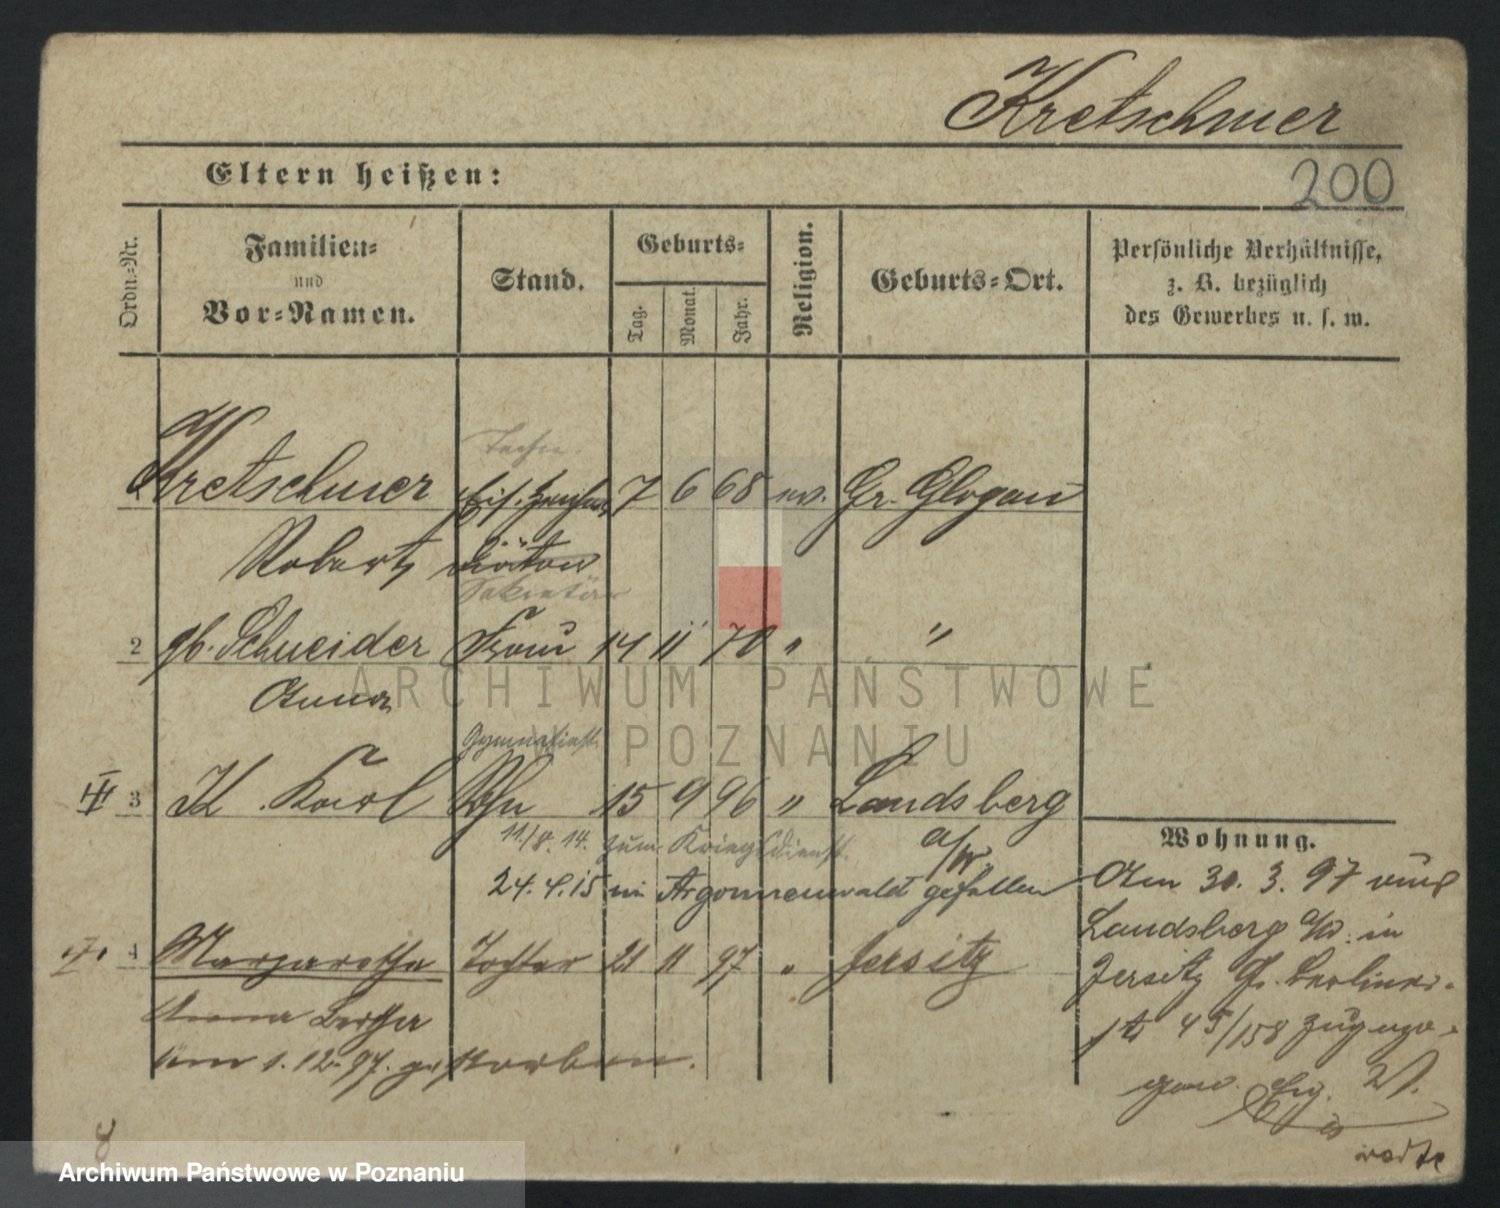 Kretschmer
Eltern heißen:
200
Ordn.-Nr.
Familien-
und
Vor-Namen.
Stand.
Geburts-
Tag.
Monat.
Jahr.
Religion.
Geburts-Ort.
Persönliche Verhältnisse,
z. B. bezüglich
des Gewerbes u. s. w.
Techn.
Kretschmer 7 6 68 ev. Gr. Glogau
Robert Diätar
Sekretär
2 gb. Schneider Frau 14 11 70 " "
Anna
Gymnasiast
III 3 K. Karl Sohn 15 9 96 " Landsberg
a/W
11/8. 14. zum Kriegsdienst.
24. 4. 15 im Argonnenwald gefallen
4 Margarethe Tochter 21 11 97 " Jersitz
Anna Bertha
am 1. 12. 97. gestorben.
Wohnung.
Am 30. 3. 97 von
Landsberg a/W. in
Jersitz Gr. Berliner-
str 45/158 zugezo-
gen.
8
ARCHIWUM PAŃSTWOWE
W POZNANIU
Archiwum Państwowe w Poznaniu